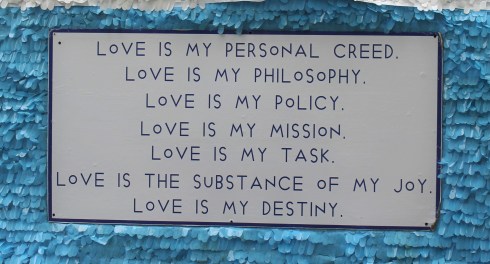 LOVE IS MY PERSONAL CREED.
LOVE IS MY PHILOSOPHY.
LOVE IS MY POLICY.
LOVE IS MY MISSION.
LOVE IS MY TASK.
LOVE IS THE SUBSTANCE OF MY JOY.
LOVE IS MY DESTINY.